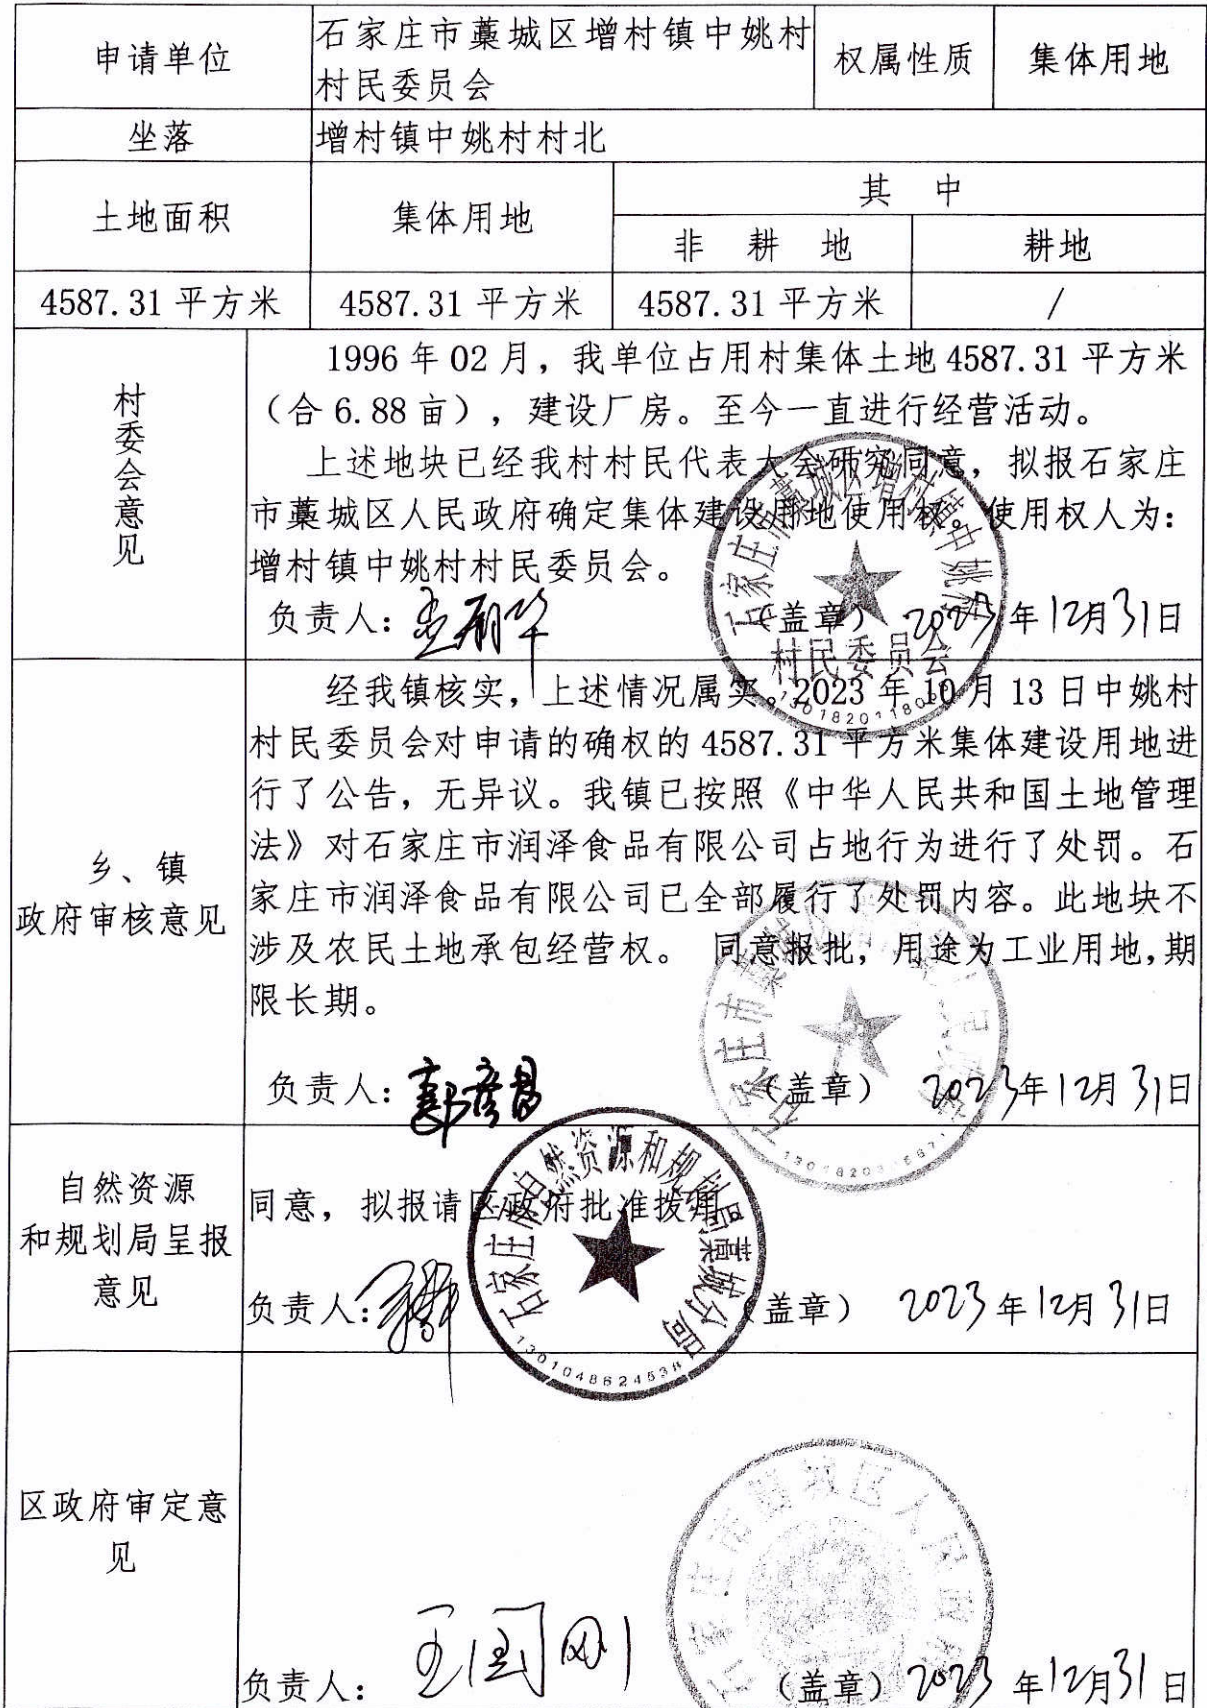 申请单位
石家庄市藁城区增村镇中姚村
村民委员会
权属性质
集体用地
坐落
增村镇中姚村村北
土地面积
集体用地
其 中
非 耕 地
耕地
4587.31 平方米
4587.31 平方米
4587.31 平方米
/
村委会意见
1996 年 02 月，我单位占用村集体土地 4587.31 平方米
（合 6.88 亩），建设厂房。至今一直进行经营活动。
上述地块已经我村村民代表大会研究同意，拟报石家庄
市藁城区人民政府确定集体建设用地使用权。使用权人为：
增村镇中姚村村民委员会。
负责人：
（盖章） 2023 年 12月 31日
石家庄市藁城区增村镇中姚村
村民委员会
乡、镇
政府审核意见
经我镇核实，上述情况属实。2023 年 10 月 13 日中姚村
村民委员会对申请的确权的 4587.31 平方米集体建设用地进
行了公告，无异议。我镇已按照《中华人民共和国土地管理
法》对石家庄市润泽食品有限公司占地行为进行了处罚。石
家庄市润泽食品有限公司已全部履行了处罚内容。此地块不
涉及农民土地承包经营权。 同意报批，用途为工业用地，期
限长期。
负责人：郭彦昌
（盖章） 2023年 12月 31日
自然资源
和规划局呈报
意见
同意，拟报请区政府批准拨用
负责人：
（盖章） 2023 年 12月 31日
石家庄市自然资源和规划局藁城分局
1301048624538
区政府审定意
见
石家庄市藁城区人民政府
负责人：王国刚
（盖章）2023 年 12月 31 日